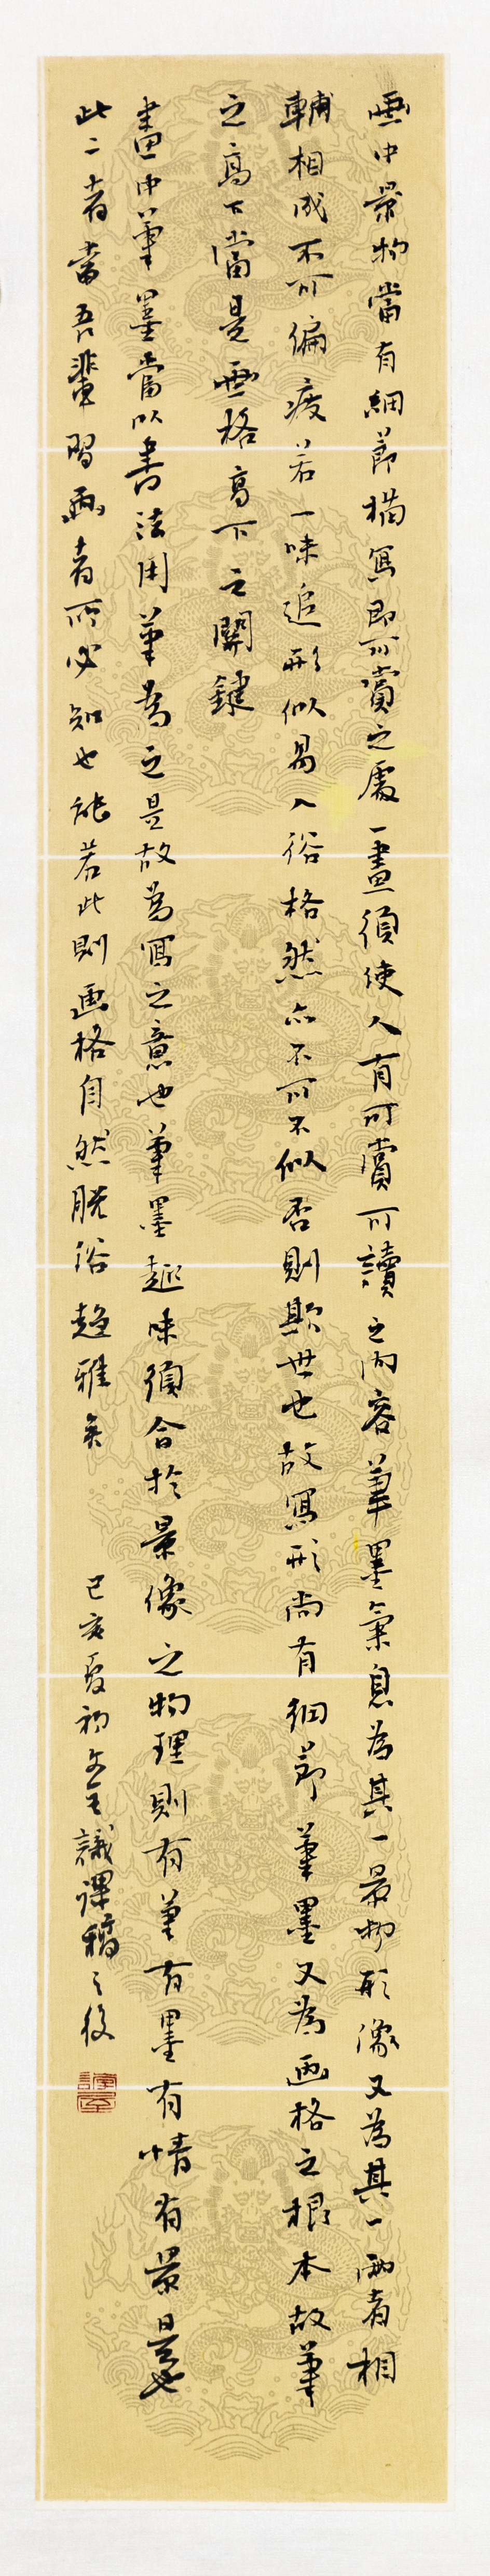 畫中景物當有細節描寫即可賞之處一畫須使人有可賞可讀之內容筆墨氣息為其一景物形像又為其一兩者相
輔相成不可偏廢若一味追形似易入俗格然亦不可不似否則欺世也故寫形尚有細節筆墨又為画格之根本故筆
之高下當是画格高下之關鍵
畫中筆墨當以書法用筆為之是故為寫之意也筆墨趣味須合於景像之物理則有筆有墨有情有景是也
此二者當吾輩習画者所必知也能若此則画格自然脱俗趋雅矣
己亥夏初 議課稿之後